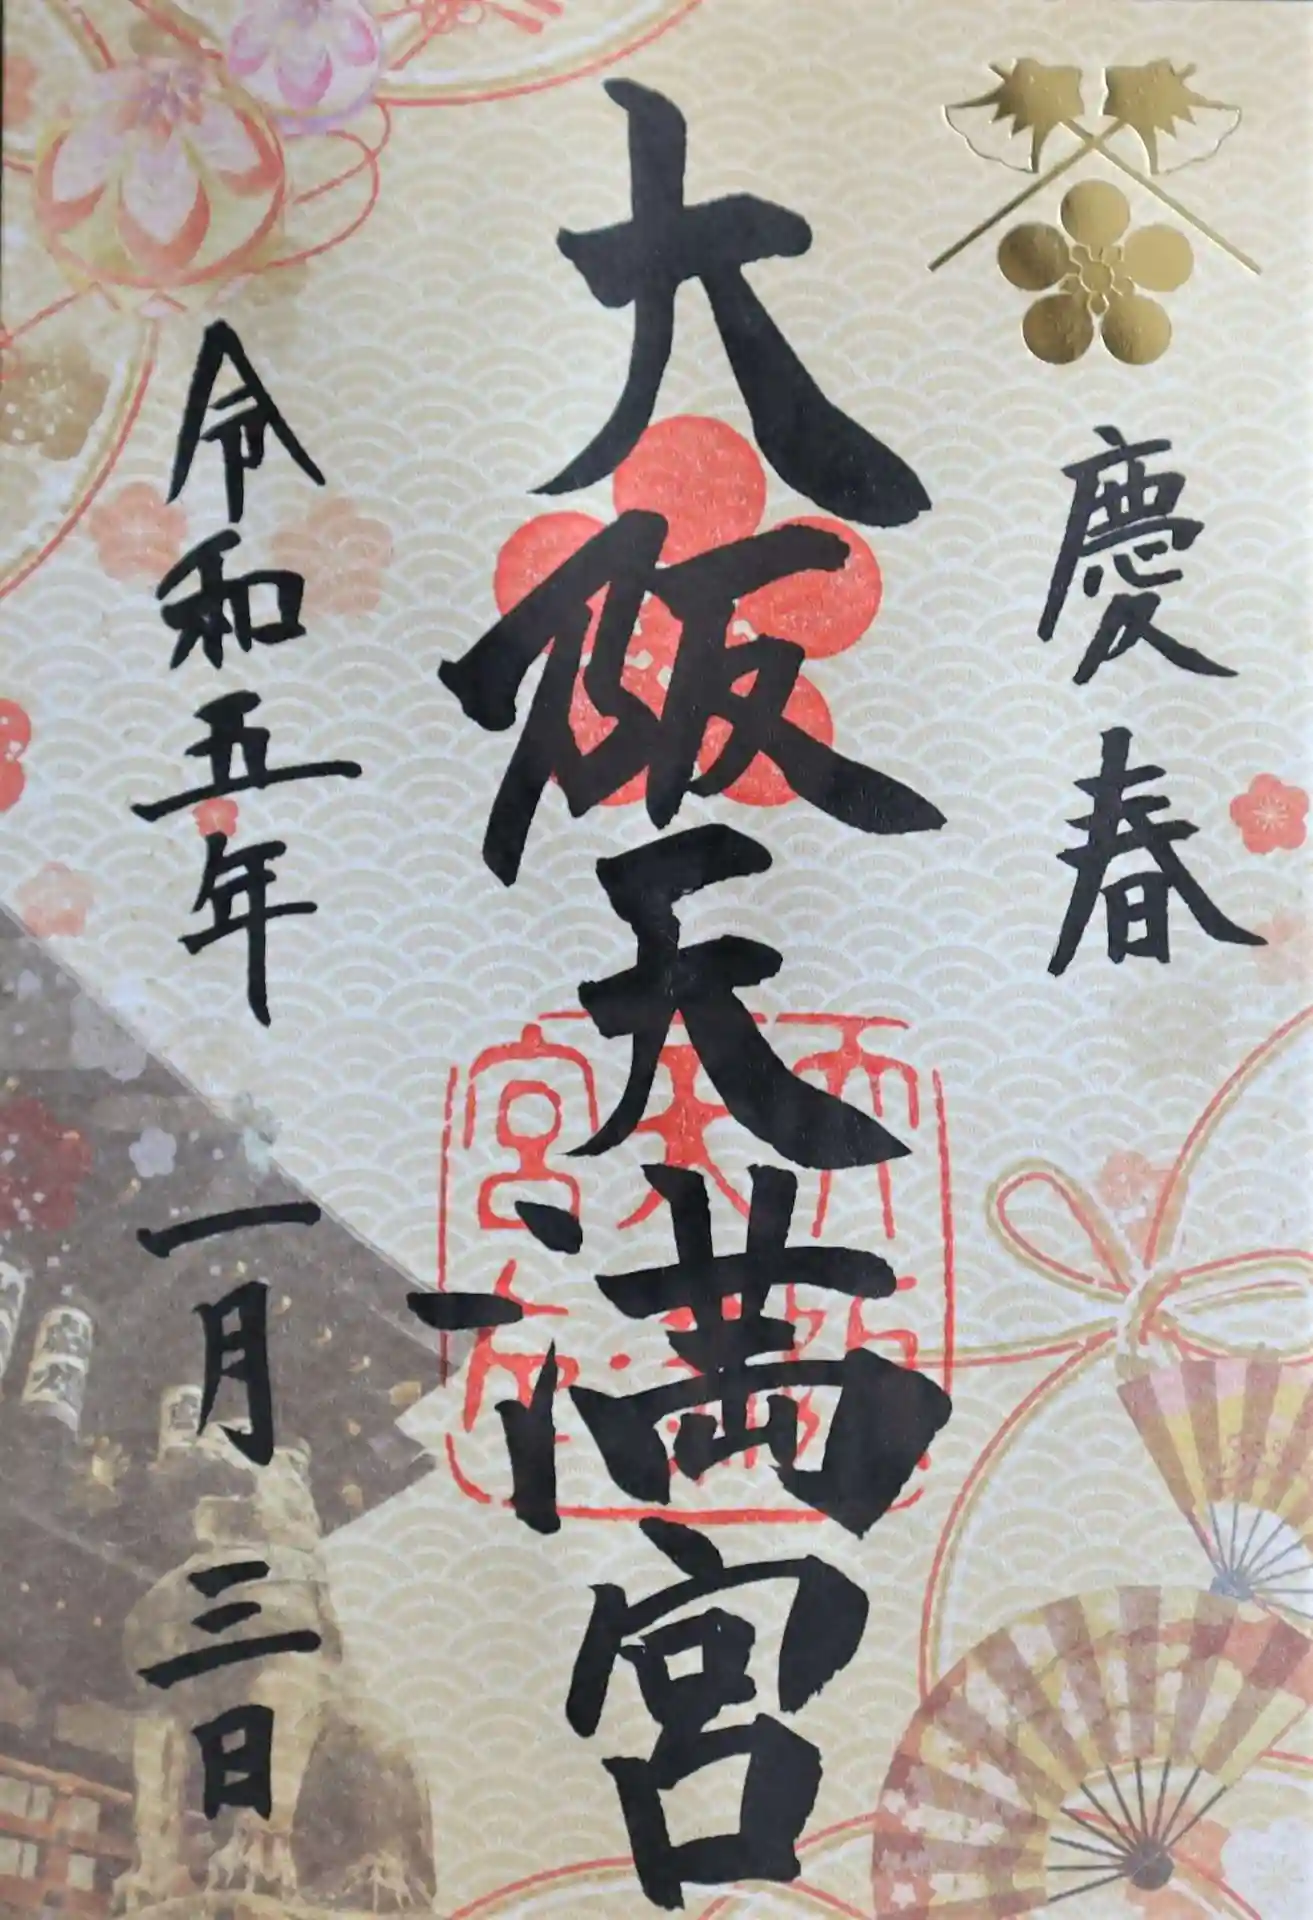 慶春
大阪天満宮
令和五年
一月三日